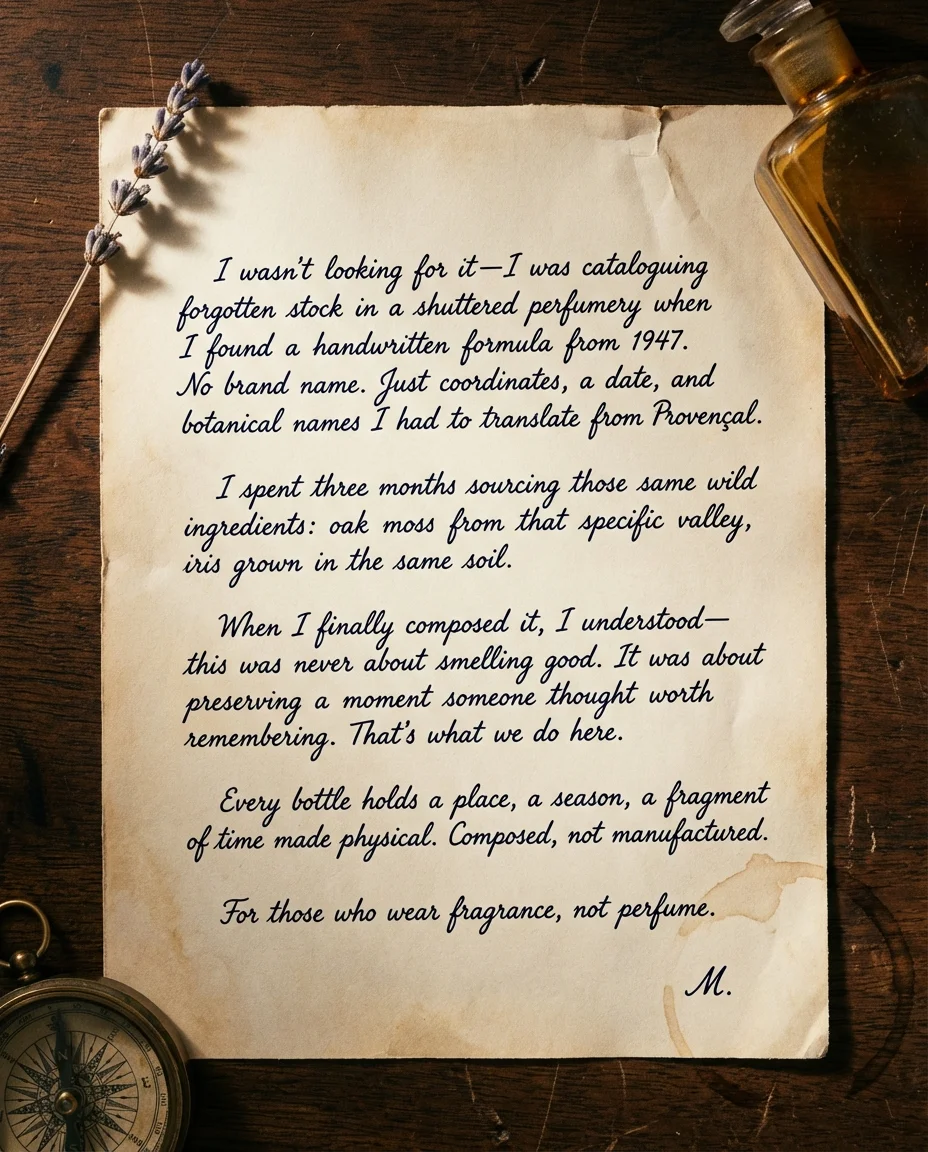 I wasn't looking for it—I was cataloguing
forgotten stock in a shuttered perfumery when
I found a handwritten formula from 1947.
No brand name. Just coordinates, a date, and
botanical names I had to translate from Provençal.
I spent three months sourcing those same wild
ingredients: oak moss from that specific valley,
iris grown in the same soil.
When I finally composed it, I understood—
this was never about smelling good. It was about
preserving a moment someone thought worth
remembering. That's what we do here.
Every bottle holds a place, a season, a fragment
of time made physical. Composed, not manufactured.
For those who wear fragrance, not perfume.
M.
N
E